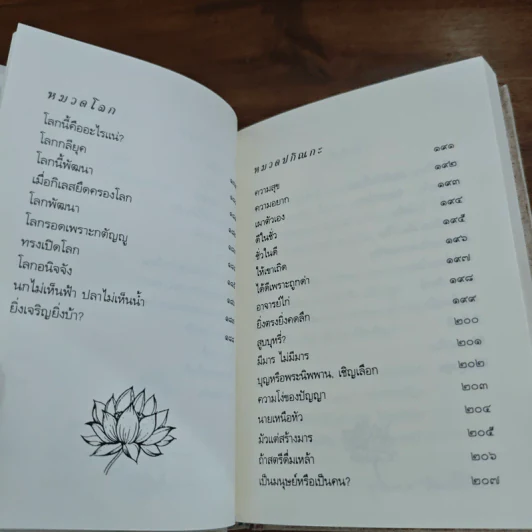 หมวดโลก
โลกนี้คืออะไรแน่?
โลกกลียุค
โลกนี้พัฒนา
เมื่อกิเลสยึดครองโลก
โลกพัฒนา
โลกรอดเพราะกตัญญู
ทรงเปิดโลก
โลกอนิจจัง
นกไม่เห็นฟ้า ปลาไม่เห็นน้ำ
ยิ่งเจริญยิ่งบ้า?
หมวดปกิณกะ
ความสุข ๑๙๑
ความอยาก ๑๙๒
เผาตัวเอง ๑๙๓
ดีในชั่ว ๑๙๔
ชั่วในดี ๑๙๕
ให้เขาเถิด ๑๙๖
ได้ดีเพราะถูกด่า ๑๙๗
อาจารย์ไก่ ๑๙๘
ยิ่งตรงยิ่งคดลึก ๑๙๙
สูบบุหรี่? ๒๐๐
มีมาร ไม่มีมาร ๒๐๑
บุญหรือพระนิพพาน, เชิญเลือก ๒๐๒
ความโง่ของปัญญา ๒๐๓
นายเหนือหัว ๒๐๔
มัวแต่สร้างมาร ๒๐๕
ถ้าสตรีดื่มเหล้า ๒๐๖
เป็นมนุษย์หรือเป็นคน? ๒๐๗